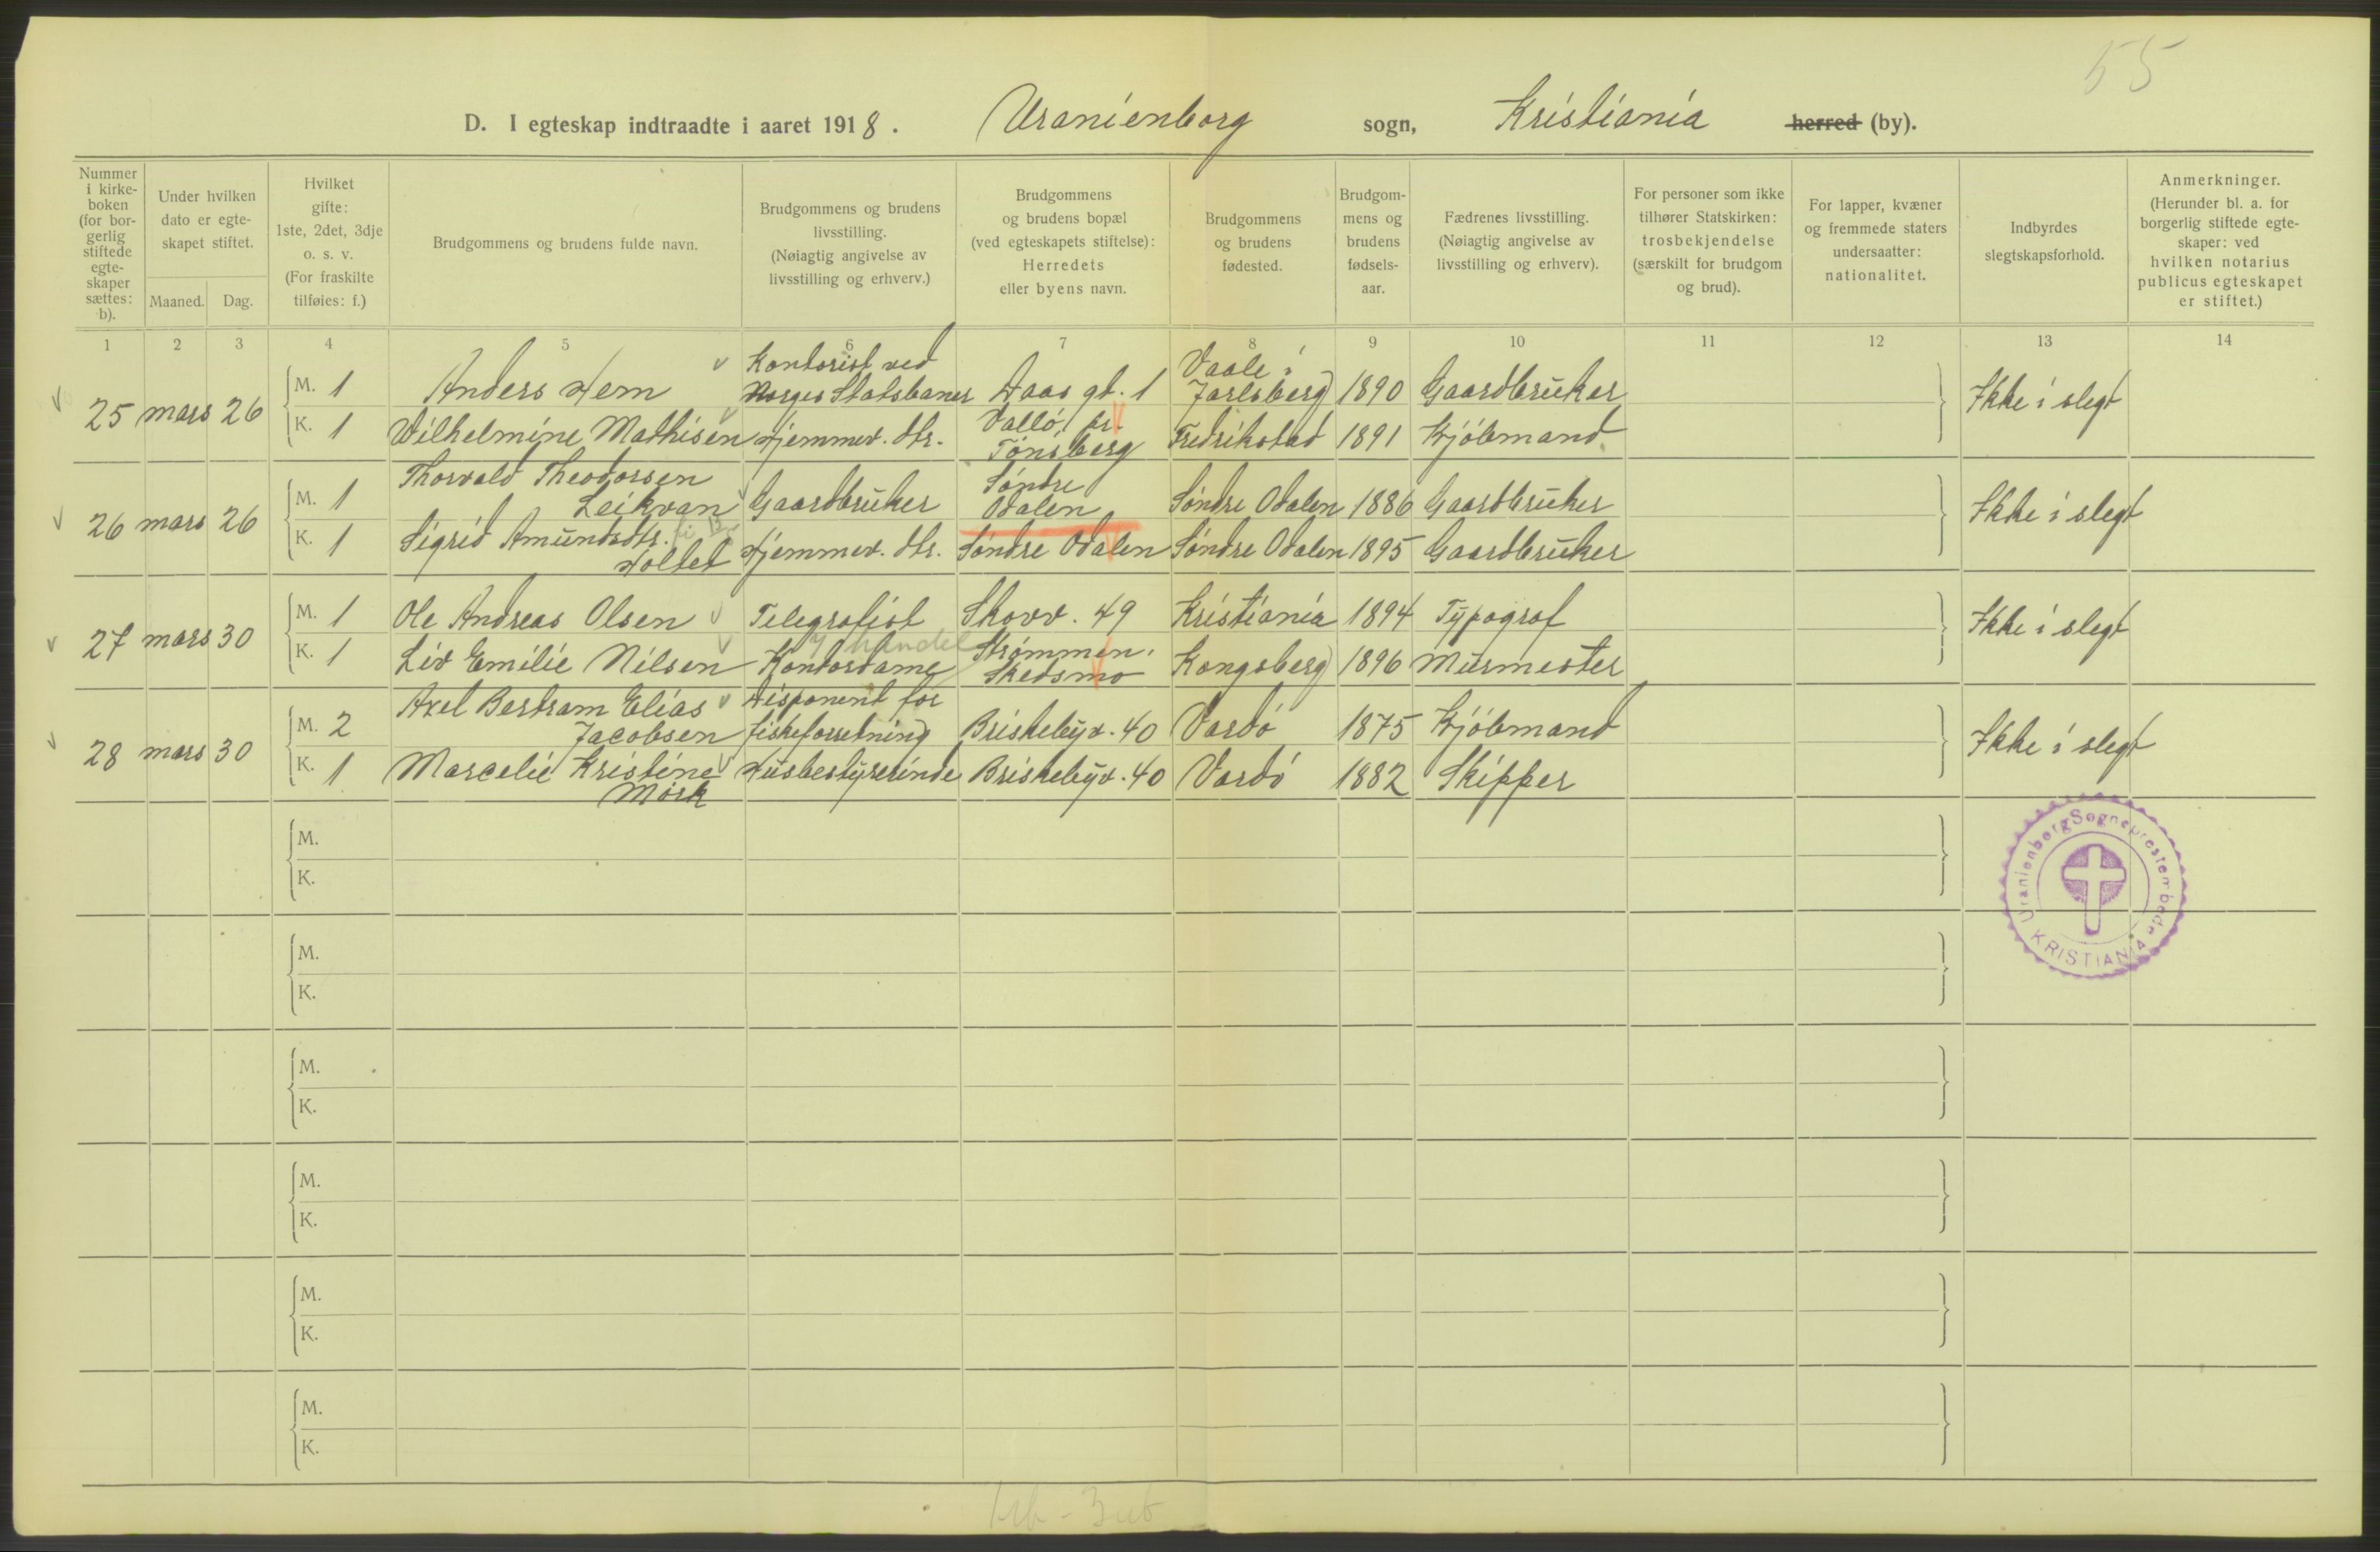 55
D. I egteskap indtraadte i aaret 1918. Uranienborg sogn, Kristiania herred (by).
Nummer
i kirke-
boken
(for bor-
gerlig
stiftede
egte-
skaper
sættes:
b).
Under hvilken
dato er egte-
skapet stiftet.
Maaned. Dag.
Hvilket
gifte:
1ste, 2det, 3dje
o. s. v.
(For fraskilte
tilføies: f.)
Brudgommens og brudens fulde navn.
Brudgommens og brudens
livsstilling.
(Nøiagtig angivelse av
livsstilling og erhverv.)
Brudgommens
og brudens bopæl
(ved egteskapets stiftelse):
Herredets
eller byens navn.
Brudgommens
og brudens
fødested.
Brudgom-
mens og
brudens
fødsels-
aar.
Fædrenes livsstilling.
(Nøiagtig angivelse av
livsstilling og erhverv).
For personer som ikke
tilhører Statskirken:
trosbekjendelse
(særskilt for brudgom
og brud).
For lapper, kvæner
og fremmede staters
undersaatter:
nationalitet.
Indbyrdes
slegtskapsforhold.
Anmerkninger.
(Herunder bl. a. for
borgerlig stiftede egte-
skaper: ved
hvilken notarius
publicus egteskapet
er stiftet.)
1 2 3 4 5 6 7 8 9 10 11 12 13 14
25 mars 26
M. 1 Anders Hem Kontorist ved
Norges Statsbaner Daas gt. 1 Vaale i
Jarlsberg 1890 Gaardbruker Ikke i slegt
K. 1 Wilhelmine Mathisen Hjemmev. dtr. Valló, pr.
Tönsberg Fredrikstad 1891 Kjöbmand
26 mars 26
M. 1 Thorvald Theodorsen
Leikvan Gaardbruker Söndre
Odalen Söndre Odalen 1886 Gaardbruker Ikke i slegt
K. 1 Sigrid Amundsdtr.
Holtet Hjemmev. dtr. Söndre Odalen Söndre Odalen 1895 Gaardbruker
27 mars 30
M. 1 Ole Andreas Olsen Telegrafist Skovv. 49 Kristiania 1894 Typograf Ikke i slegt
K. 1 Liv Emilie Nilsen handel
Kontordame Strømmen,
Skedsmo Kongsberg 1896 Murmester
28 mars 30
M. 2 Axel Bertram Elias
Jacobsen Disponent for
fiskeforretning Briskebyv. 40 Vardö 1875 Kjöbmand Ikke i slegt
K. 1 Marcelie Kristine
Mörk Husbestyrerinde Briskebyv. 40 Vardö 1882 Skipper
M.
K.
Uranienborg Sogneprestembede
KRISTIANIA
M.
K.
M.
K.
M.
K.
M.
K.
M.
K.